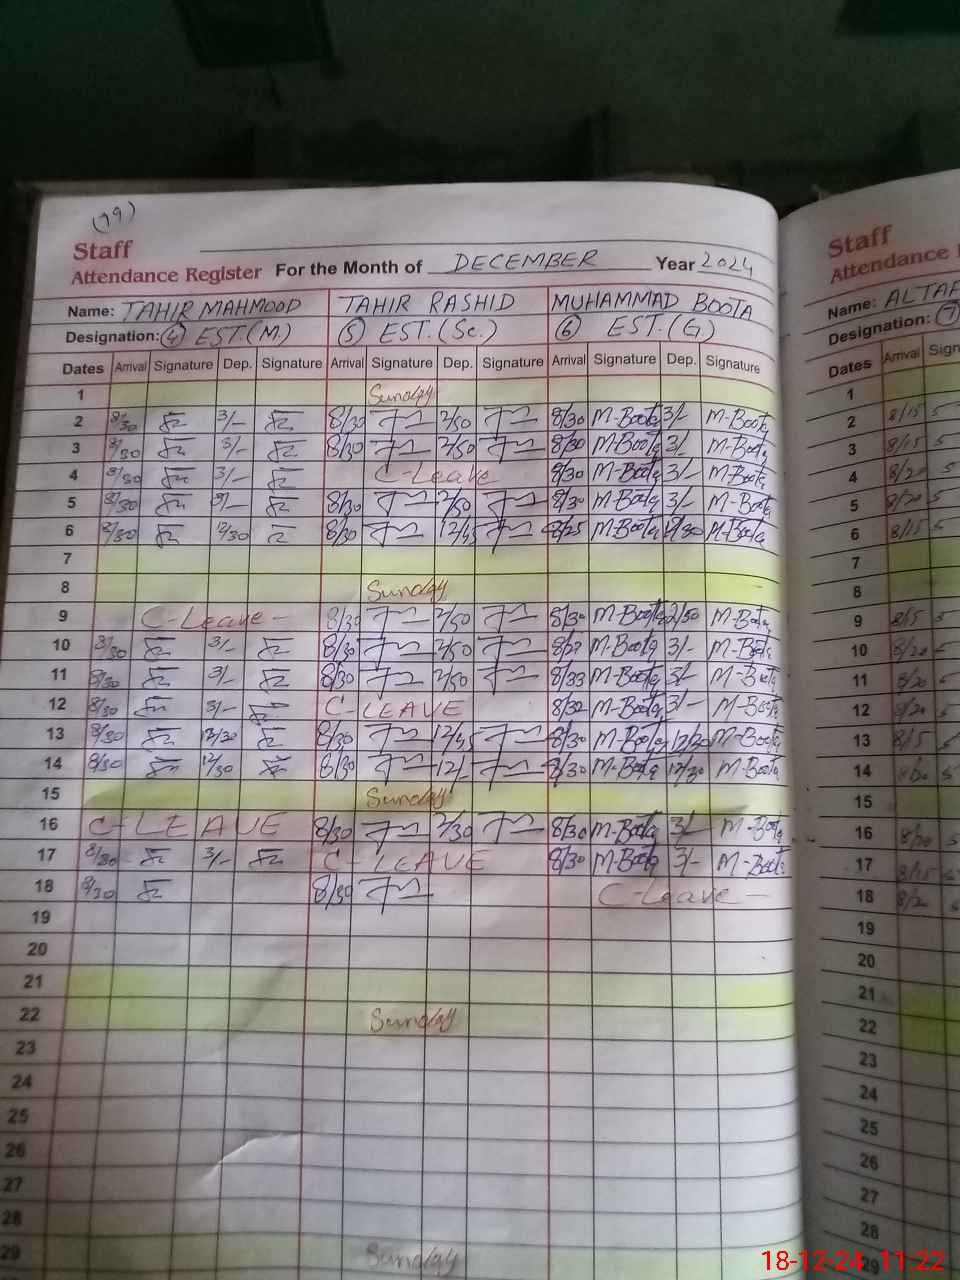 (79)
Staff
Attendance Register For the Month of DECEMBER Year 2024
Name: TAHIR MAHMOOD TAHIR RASHID MUHAMMAD BOOTA
Designation: (4) EST.(M.) (5) EST.(Sc.) (6) EST.(G.)
Dates Arrival Signature Dep. Signature Arrival Signature Dep. Signature Arrival Signature Dep. Signature
1 Sunday
2 8/30 3/- 8/30 2/50 8/30 M-Boota 3/- M-Boota
3 8/30 3/- 8/30 2/50 8/30 M-Boota 3/- M-Boota
4 8/30 3/- C-Leave 8/30 M-Boota 3/- M-Boota
5 8/30 8/30 2/50 8/30 M-Boota 3/- M-Boota
6 8/30 12/30 8/30 12/45 8/25 M-Boota 12/30 M-Boota
7
8 Sunday
9 C-Leave - 8/30 2/50 8/30 M-Boota 2/50 M-Boota
10 8/30 3/- 8/30 2/50 8/27 M-Boota 3/- M-Boota
11 8/30 3/- 8/30 2/50 8/33 M-Boota 3/- M-Boota
12 8/30 3/- C-LEAVE M-Boota 3/- M-Boota
13 8/30 12/30 8/30 12/45 8/30 M-Boota 12/30 M-Boota
14 8/30 12/30 8/30 12/- 8/30 M-Boota 12/30 M-Boota
15 Sunday
16 C-LEAVE 8/30 2/30 8/30 M-Boota 3/- M-Boota
17 8/30 3/- C-LEAVE 8/30 M-Boota 3/- M-Boota
18 8/30 8/30 C-Leave -
19
20
21
22 Sunday
23
24
25
26
27
28
29 Sunday
Staff
Attendance
Name: ALTAF
Designation: (7)
Dates Arrival
1
2 8/15
3 8/15
4 8/20
5 8/20
6 8/15
7
8
9 8/15
10 8/20
11 8/20
12 8/20
13 8/15
14
15
16 8/20
17 8/15
18 8/20
19
20
21
22
23
24
25
26
27
28
29
18-12-24 11:22